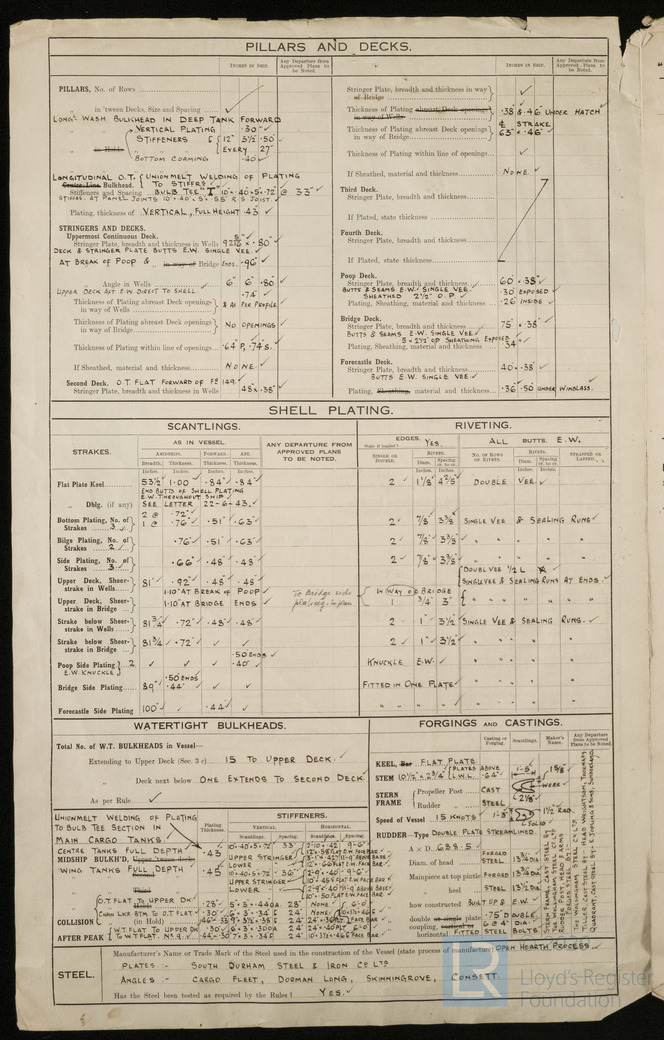 PILLARS AND DECKS.
INCHES IN SHIP.
Any Departure from Approved Plans to be Noted.
PILLARS, No. of Rows
in 'tween Decks, Size and Spacing
LONGL WASH BULKHEAD IN DEEP TANK FORWARD
VERTICAL PLATING ·30"
STIFFENERS 12" 3½" ·50
in Hold EVERY 27"
BOTTOM COAMING ·40
LONGITUDINAL O.T. UNIONMELT WELDING OF PLATING
Centre Line Bulkhead. TO STIFFRS
Stiffeners and Spacing BULB TEE "T" 10"×·40×5×·72" @ 33"
STIFFRS. AT PANEL JOINTS 10"×·40"×5"×·55" R.S. JOIST.
Plating, thickness of VERTICAL, FULL HEIGHT ·43
STRINGERS AND DECKS.
Uppermost Continuous Deck.
Stringer Plate, breadth and thickness in Wells ·80"
DECK & STRINGER PLATE BUTTS E.W. SINGLE VEE
AT BREAK OF POOP & in way of Bridge ENDS ·96"
Angle in Wells 6" 6" ·80
UPPER DECK AFT E.W. DIRECT TO SHELL
·74"
Thickness of Plating abreast Deck openings in way of Wells & AS PER PROFILE
Thickness of Plating abreast Deck openings in way of Bridge NO OPENINGS
Thickness of Plating within line of openings ·64" P, ·74" S.
If Sheathed, material and thickness NONE
Second Deck. O.T. FLAT FORWARD OF FR 149.
Stringer Plate, breadth and thickness in Wells 48"×·38"
INCHES IN SHIP.
Any Departure from Approved Plans to be Noted.
Stringer Plate, breadth and thickness in way of Bridge
Thickness of Plating abreast Deck openings in way of Wells ·38 & ·46 UNDER HATCH
& STRAKE
Thickness of Plating abreast Deck openings in way of Bridge 63"×·46"
Thickness of Plating within line of openings
If Sheathed, material and thickness NONE
Third Deck.
Stringer Plate, breadth and thickness
If Plated, state thickness
Fourth Deck.
Stringer Plate, breadth and thickness
If Plated, state thickness
Poop Deck.
Stringer Plate, breadth and thickness 60"×·38"
BUTTS & SEAMS E.W. SINGLE VEE ·30 EXPOSED
SHEATHED 2½" O.P.
Plating, Sheathing, material and thickness ·26 INSIDE
Bridge Deck.
Stringer Plate, breadth and thickness 75"×·38"
BUTTS & SEAMS E.W. SINGLE VEE
5"×2½" OP SHEATHING EXPOSED
Plating, Sheathing, material and thickness ·34"
Forecastle Deck.
Stringer Plate, breadth and thickness 40"×·38"
BUTTS E.W. SINGLE VEE
Plating, Sheathing, material and thickness ·36"·50 UNDER WINDLASS.
SHELL PLATING.
SCANTLINGS.
STRAKES.
AS IN VESSEL.
AMIDSHIPS. FORWARD. AFT.
Breadth. Thickness. Thickness. Thickness.
Inches. Inches. Inches. Inches.
ANY DEPARTURE FROM APPROVED PLANS TO BE NOTED.
Flat Plate Keel 53½ 1·00 ·84 ·84
END BUTTS OF SHELL PLATING
E.W. THROUGHOUT SHIP
Dblg. (if any) SEE LETTER 22-6-43.
Bottom Plating, No. of Strakes 3 2 @ ·72" 1 @ ·76" ·51 ·63
Bilge Plating, No. of Strakes 2 ·76" ·51 ·63
Side Plating, No. of Strakes 3 ·66" ·48 ·48
Upper Deck, Sheerstrake in Wells 81" ·92" ·48 ·48
1·10" AT BREAK OF POOP
Upper Deck, Sheerstrake in Bridge 1·10" AT BRIDGE ENDS
Strake below Sheerstrake in Wells 81¾ ·72" ·48 ·48
Strake below Sheerstrake in Bridge 81¾ ·72
Poop Side Plating 2 ·50 ENDS ·40"
E.W. KNUCKLE
Bridge Side Plating 89" ·50 ENDS ·44"
Forecastle Side Plating 100" ·44"
RIVETING.
EDGES. YES.
ALL BUTTS. E.W.
SINGLE OR DOUBLE.
RIVETS.
Diam. Spacing cr. to cr.
Inches. Inches.
NO. OF ROWS OF RIVETS.
RIVETS.
Diam. Spacing cr. to cr.
Inches. Inches.
STRAPPED OR LAPPED.
2 1⅛ DOUBLE VEE.
2 ⅞ 3⅜ SINGLE VEE & SEALING RUNS
2 ⅞ 3⅜ " " " "
2 ⅞ 3⅜ " " " "
DOUBLE VEE ½ L
SINGLE VEE & SEALING RUNS AT ENDS.
To Bridge side
IN WAY OF BRIDGE
1 ¾ 3"
2 1" 3½ SINGLE VEE & SEALING RUNS.
2 1" 3½ " " " "
KNUCKLE E.W. " " " "
FITTED IN ONE PLATE " " " "
" " " " " "
WATERTIGHT BULKHEADS.
Total No. of W.T. BULKHEADS in Vessel—
Extending to Upper Deck (Sec. 3 c) 15 TO UPPER DECK
Deck next below ONE EXTENDS TO SECOND DECK
As per Rule
UNIONMELT WELDING OF PLATING
TO BULB TEE SECTION IN
MAIN CARGO TANKS.
Plating Thickness.
STIFFENERS.
VERTICAL. HORIZONTAL.
Scantlings. Spacing. Scantlings. Spacing.
CENTRE TANKS FULL DEPTH ·43
MIDSHIP BULKH'D, Upper 'tween decks
WING TANKS FULL DEPTH ·45
UPPER STRINGER
LOWER
UPPER STRINGER
LOWER
Third
O.T. FLAT TO UPPER DK ·28"
COLLISION CHAIN LKR BTM TO O.T. FLAT ·30
(in Hold)
AFTER PEAK W.T. FLAT TO UPPER DK ·30
TO W.T. FLAT
FORGINGS AND CASTINGS.
Casting or Forging.
Scantlings.
Maker's Name.
Any Departure from Approved Plans to be Noted.
KEEL, Bar FLAT PLATE
STEM 10½"×2¾" PLATES ABOVE L.W.L. ·64"
STERN FRAME
Propeller Post CAST
Rudder " STEEL
Speed of Vessel 15 KNOTS
RUDDER—Type DOUBLE PLATE STREAMLINED.
A × D 688·5
Diam. of head FORGED STEEL 13¼ DIA
Mainpiece at top pintle FORGED STEEL 13¼ DIA
" heel 13½ DIA
how constructed BUILT UP & E.W.
double or single plate ·75" DOUBLE
coupling, vertical or horizontal FITTED STEEL BOLTS
STEEL.
Manufacturer's Name or Trade Mark of the Steel used in the construction of the Vessel (state process of manufacture) OPEN HEARTH PROCESS
PLATES - SOUTH DURHAM STEEL & IRON CO LTD
ANGLES - CARGO FLEET, DORMAN LONG, SKINNINGROVE, CONSETT.
Has the Steel been tested as required by the Rules? YES.
LR
Lloyd's Register
Foundation